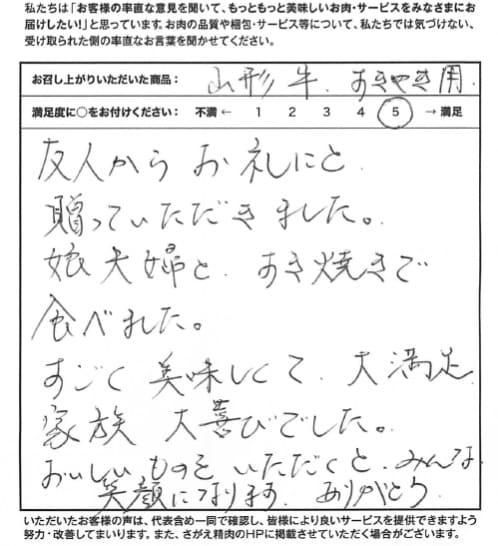 私たちは「お客様の率直な意見を聞いて、もっともっと美味しいお肉・サービスをみなさまにお
届けしたい!」と思っています。お肉の品質や梱包・サービス等について、私たちでは気づけない、
受け取られた側の率直なお言葉を聞かせてください。
お召し上がりいただいた商品： 山形牛．すきやき用．
満足度に○をお付けください： 不満 ← 1 2 3 4 5 → 満足
友人から お礼にと
贈っていただきました。
娘夫婦と．すき焼きで
食べました。
すごく 美味しくて．大満足
家族 大喜びでした。
おいしい ものを いただくと．みんな
笑顔になります．ありがとう．
いただいたお客様の声は、代表含め一同で確認し、皆様により良いサービスを提供できますよう
努力・改善してまいります。また、さがえ精肉のHPに掲載させていただく場合がございます。